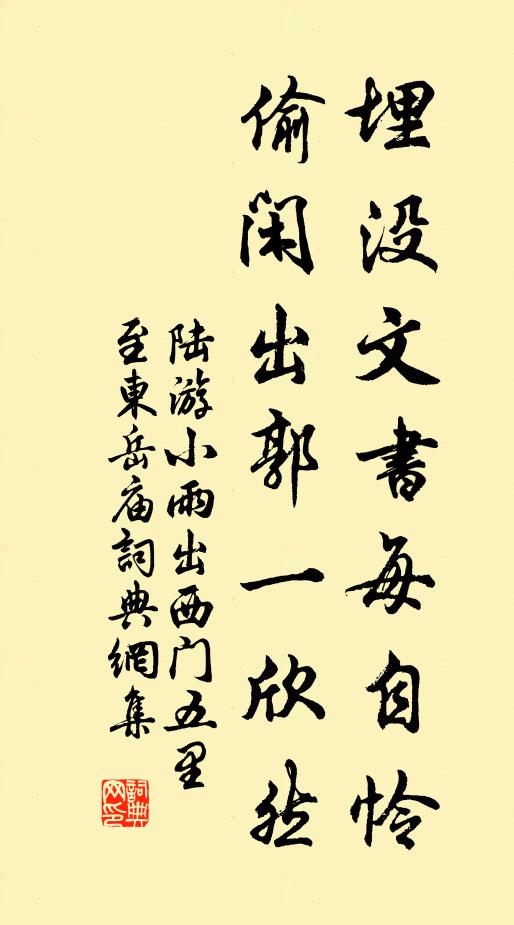 埋没文書每自怜
偷閑出郭一欣然
陆游小雨出西门五里
至東岳庙詞典網集
詞典网印